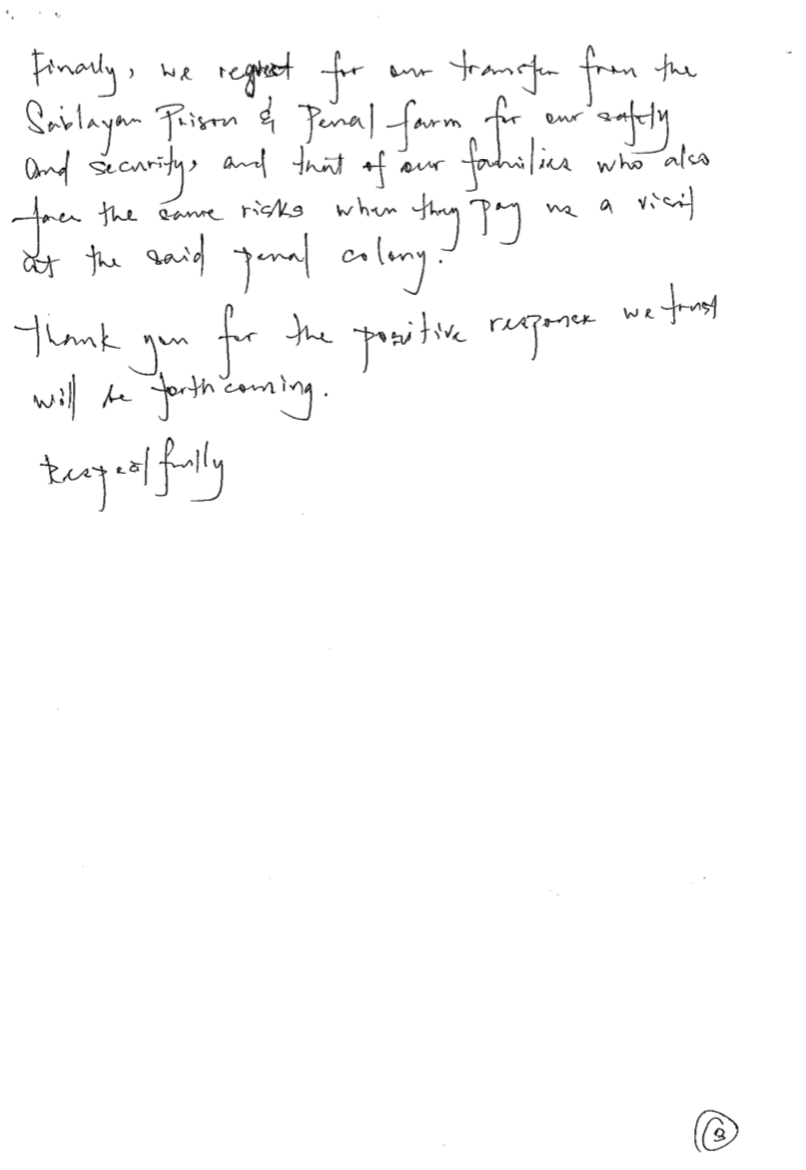 Finally, we request for our transfer from the
Sablayan Prison & Penal farm for our safety
and security, and that of our families who also
face the same risks when they pay us a visit
at the said penal colony.
Thank you for the positive response we trust
will be forthcoming.
Respectfully
3